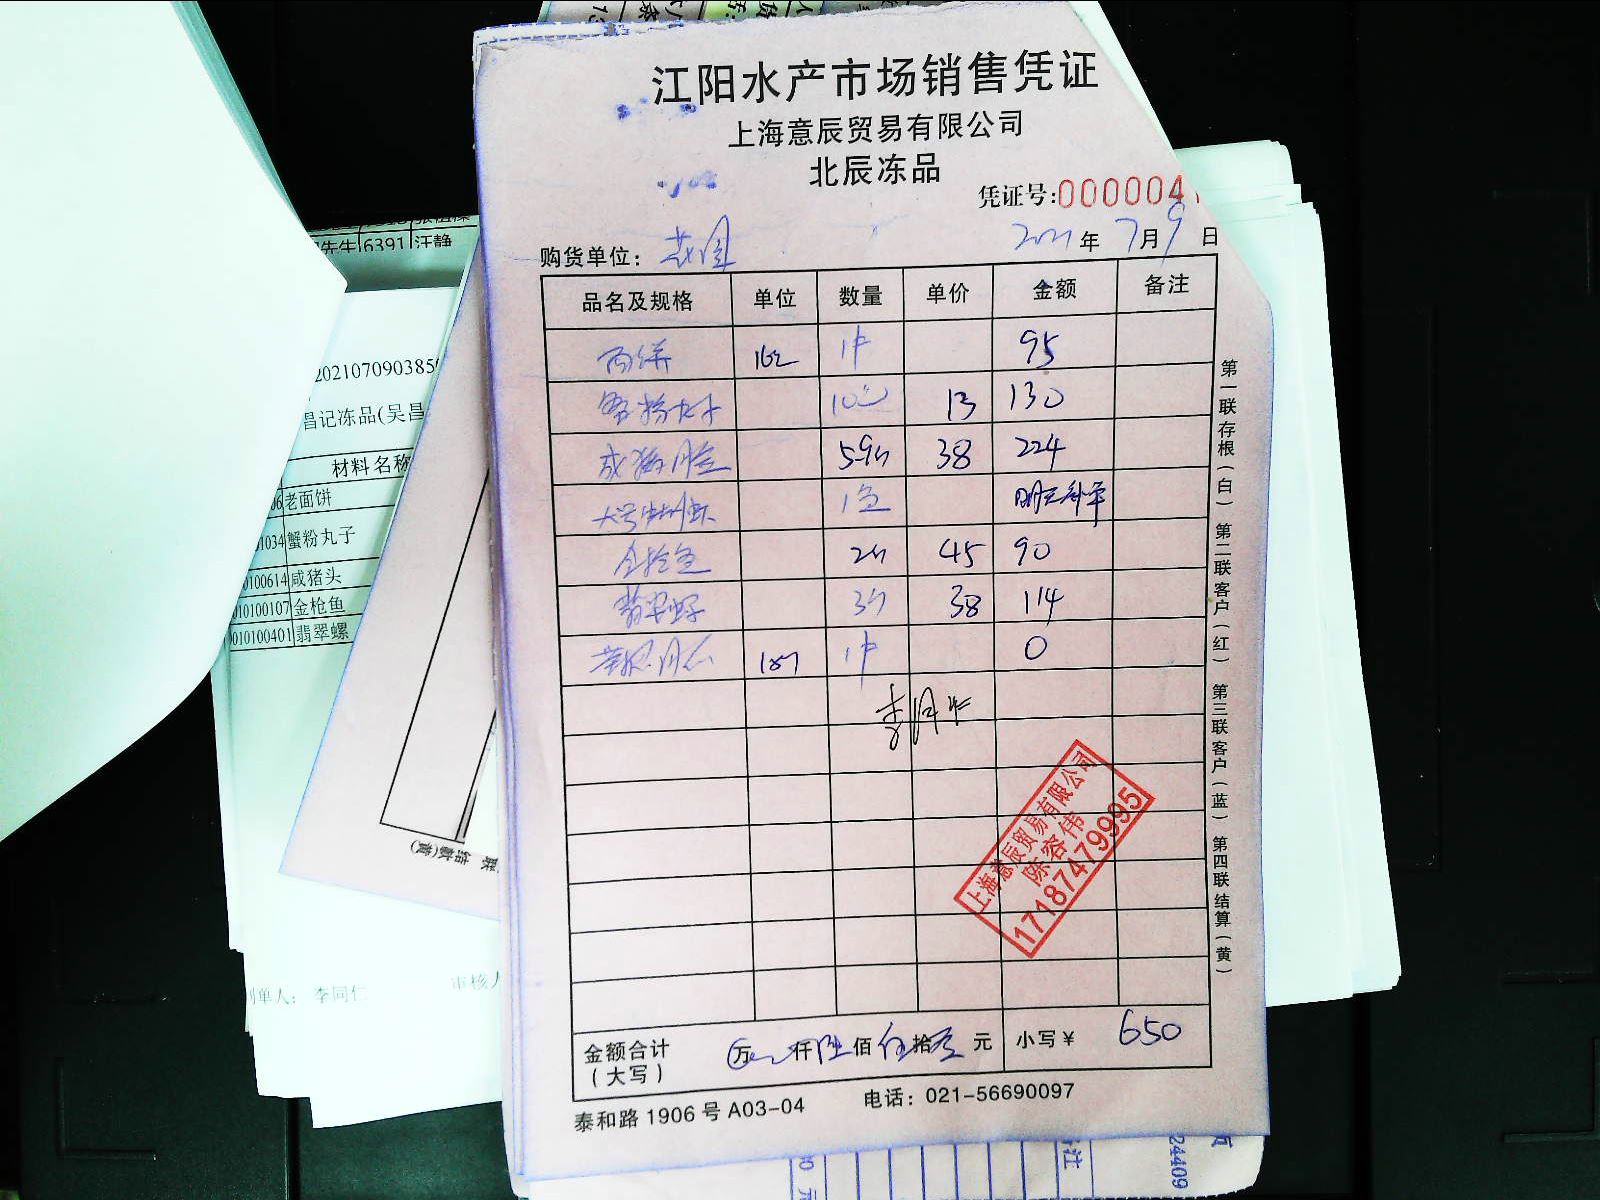 江阳水产市场销售凭证
上海意辰贸易有限公司
北辰冻品
凭证号:0000004
购货单位: 2021年7月9日
品名及规格 单位 数量 单价 金额 备注
面饼 1件 95
蟹粉丸子 10包 13 130
咸猪头 5.9斤 38 224
1包 明天补单
金枪鱼 2斤 45 90
翡翠螺 3斤 38 114
1件 0
金额合计
(大写)
万 仟陆佰伍拾零元 小写¥ 650
泰和路1906号A03-04 电话: 021-56690097
第一联存根(白) 第二联客户(红) 第三联客户(蓝) 第四联结算(黄)
上海意辰贸易有限公司
陈容伟
17187479995
先生 6391 汪静
202107090385
昌记冻品(吴昌
材料名称
老面饼
1034 蟹粉丸子
0100614 咸猪头
010100107 金枪鱼
010100401 翡翠螺
联 结算(黄)
制单人: 李同仁 审核人
24409